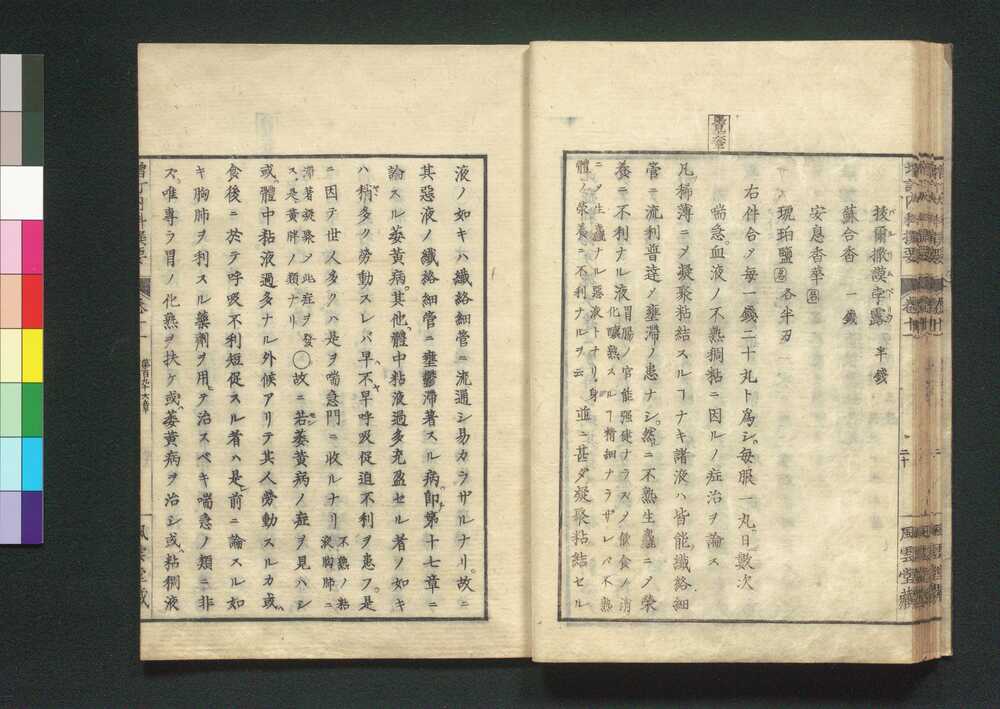 拔爾撒謨孛露 半錢
蘇合香 一錢
安息香華
琥珀鹽 各半刃
右件合メ毎一錢二十丸ト爲シ。毎服一丸。日數次
喘急。血液ノ不熟稠粘ニ因ルノ症治ヲ論ス
凡稀薄ニメ凝聚粘結スルヿナキ諸液ハ皆能纎絡細
管ニ流利普達メ壅滯ノ患ナシ。然ニ不熟生麤ニメ榮
養ニ不利ナル液 胃腸ノ官能强徤ナラスメ飮食ノ消
化釀熟スルヿ精細ナラザレバ不熟
ニメ生麤ナル惡液トナリ。身
體ノ榮養ニ不利ナルヲ云 並ニ甚タ凝聚粘結セル
液ノ如キハ纎絡細管ニ流通シ易カラザルナリ。故ニ
其惡液ノ纎絡細管ニ壅鬱滯著スル病。卽第十七章ニ
論スル萎黃病。其他體中粘液過多充盈セル者ノ如キ
ハ稍多ク勞動スレバ早不早呼吸促迫不利ヲ患フ。是
ニ因テ世人多クハ是ヲ喘急門ニ收ルナリ 不熟ノ粘
液胸肺ニ
滯著凝聚メ此症ヲ發
ス。是黃胖ノ類ナリ ○故ニ若萎黃病ノ症ヲ見ハシ
或體中粘液過多ナル外候アリテ其人勞動スルカ或
食後ニ於テ呼吸不利短促スル者ハ是前ニ論スル如
キ胸肺ヲ利スル藥劑ヲ用テ治スベキ喘急ノ類ニ非
ズ唯專ラ胃ノ化熟ヲ扶ケ或萎黃病ヲ治シ或粘稠液
增訂內科撰要
卷十一
二十
風雲堂藏